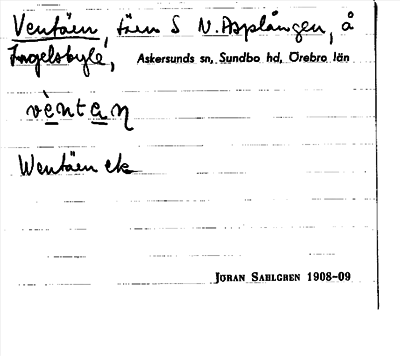 Ventäen, täen S N. Asplången, å
Ingelsbyle, Askersunds sn, Sundbo hd, Örebro län
vèntæn
Wentäen ek
JÖRAN SAHLGREN 1908–09